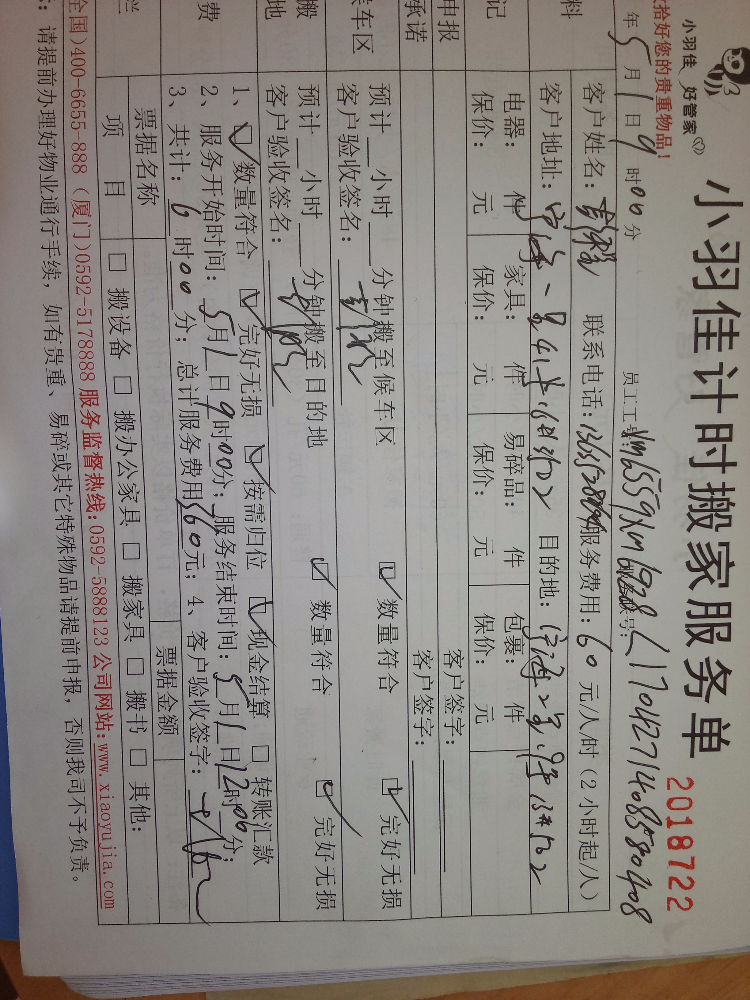 小羽佳 好管家
小羽佳计时搬家服务单 2018722
拾好您的贵重物品!
年5月1日9时00分 员工工号:
客户姓名: 联系电话: 服务费用:60元/人/时(2小时起/人)
客户地址: 目的地:
电器: 件 家具: 件 易碎品: 件 包裹: 件
保价: 元 保价: 元 保价: 元 保价: 元
申报 客户签字:
承诺 客户签字:
候车区 预计__小时__分钟搬至候车区 ☑ 数量符合 ☑ 完好无损
客户验收签名:
搬 预计__小时__分钟搬至目的地 ☑ 数量符合 ☑ 完好无损
地 客户验收签名:
1、☑ 数量符合 ☑ 完好无损 ☑ 按需归位 ☑ 现金结算 □ 转账汇款
费 2、服务开始时间:5月1日9时00分;服务结束时间:5月1日12时00分;
3、共计:6时00分;总计服务费用360元;4、客户验收签字:
票据名称 票据金额
栏 项目 □ 搬设备 □ 搬办公家具 □ 搬家具 □ 搬书 □ 其他:
全国)400-6655-888 (厦门)0592-5178888 服务监督热线:0592-5888123 公司网站:www.xiaoyujia.com
:请提前办理好物业通行手续,如有贵重、易碎或其它特殊物品请提前申报,否则我司不予负责。